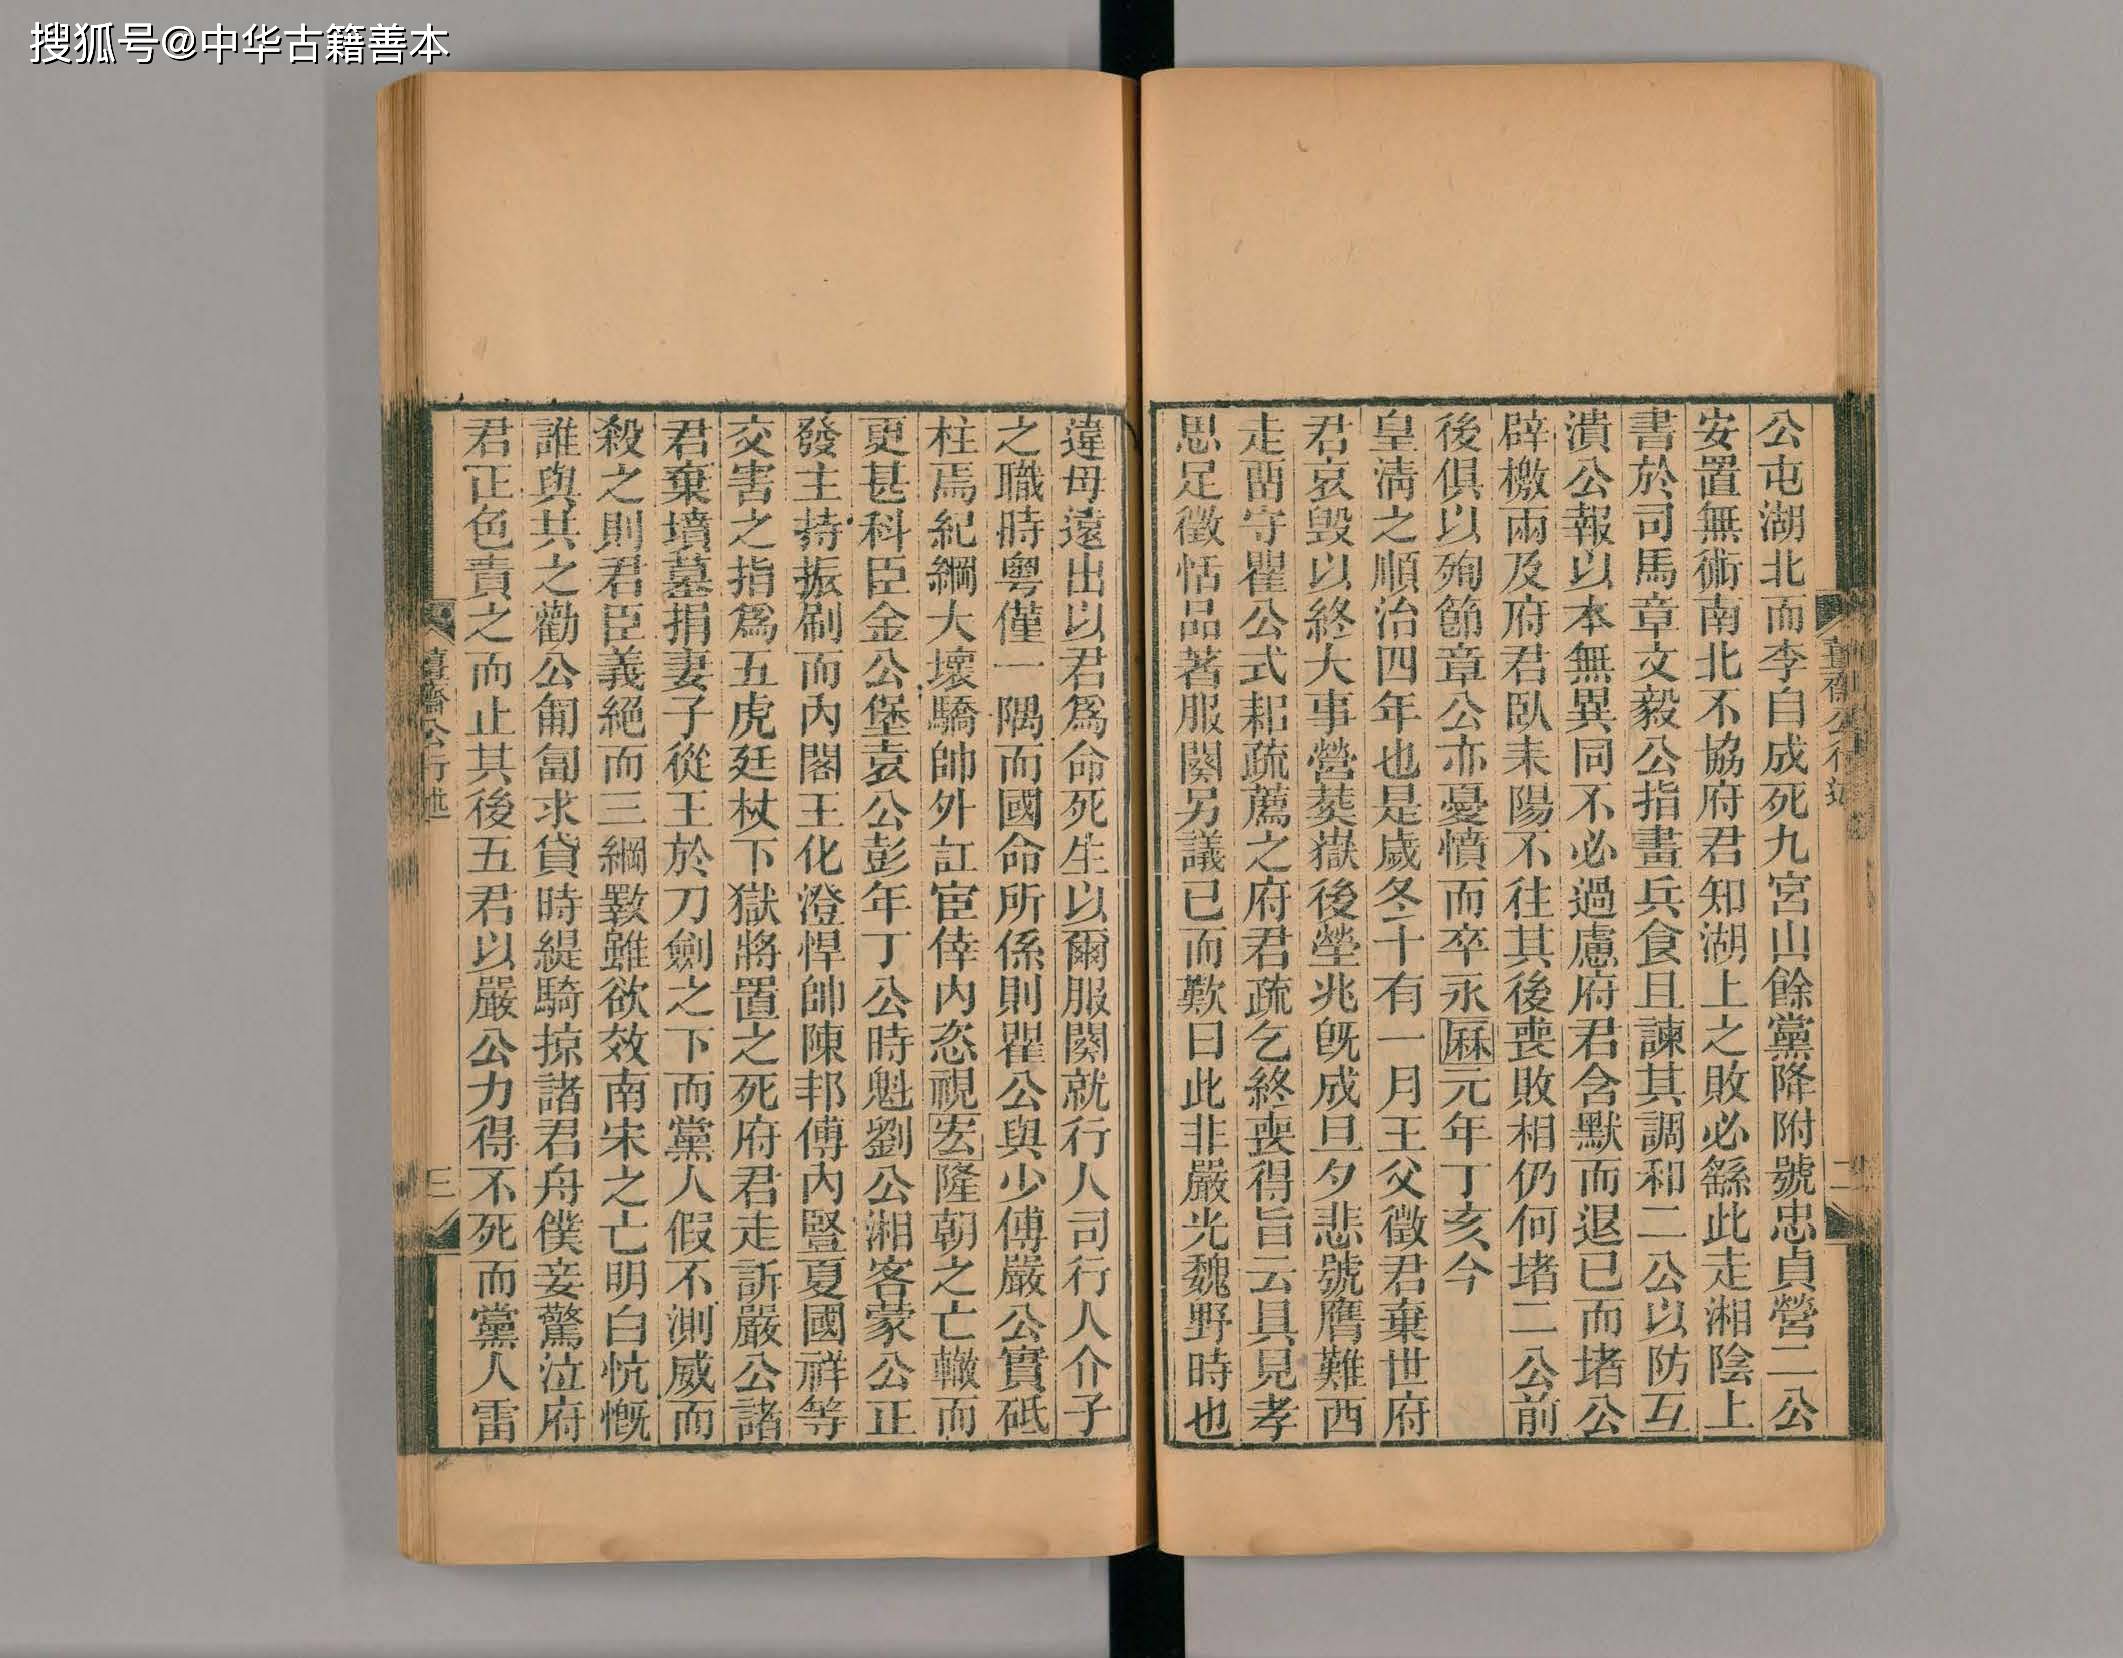 搜狐号@中华古籍善本
公屯湖北而李自成死九宮山餘黨降附號忠貞營二公
安置無術南北不協府君知湖上之敗必繇此走湘陰上
書於司馬章文毅公指畫兵食且諫其調和二公以防互
潰公報以本無異同不必過慮府君含默而退已而堵公
辟檄兩及府君臥耒陽不往其後喪敗相仍何堵二公前
後俱以殉節章公亦憂憤而卒永厤元年丁亥今
皇淸之順治四年也是歲冬十有一月王父徵君棄世府
君哀毀以終大事營葬嶽後塋兆旣成旦夕悲號膺難西
走畱守瞿公式耜疏薦之府君疏乞終喪得旨云具見孝
思足徵恬品著服闋另議已而歎曰此非嚴光魏野時也
薑齋公行述
二
違母遠出以君爲命死生以爾服闋就行人司行人介子
之職時粵僅一隅而國命所係則瞿公與少傅嚴公實砥
柱焉紀綱大壞驕帥外訌宦倖內恣視宏隆朝之亡轍而
更甚科臣金公堡袁公彭年丁公時魁劉公湘客蒙公正
發主持振刷而內閣王化澄悍帥陳邦傅內豎夏國祥等
交害之指爲五虎廷杖下獄將置之死府君走訴嚴公諸
君棄墳墓捐妻子從王於刀劍之下而黨人假不測威而
殺之則君臣義絕而三綱斁雖欲效南宋之亡明白慷慨
誰與共之勸公匍匐求貸時緹騎掠諸君舟僕妾驚泣府
君正色責之而止其後五君以嚴公力得不死而黨人雷
薑齋公行述
三